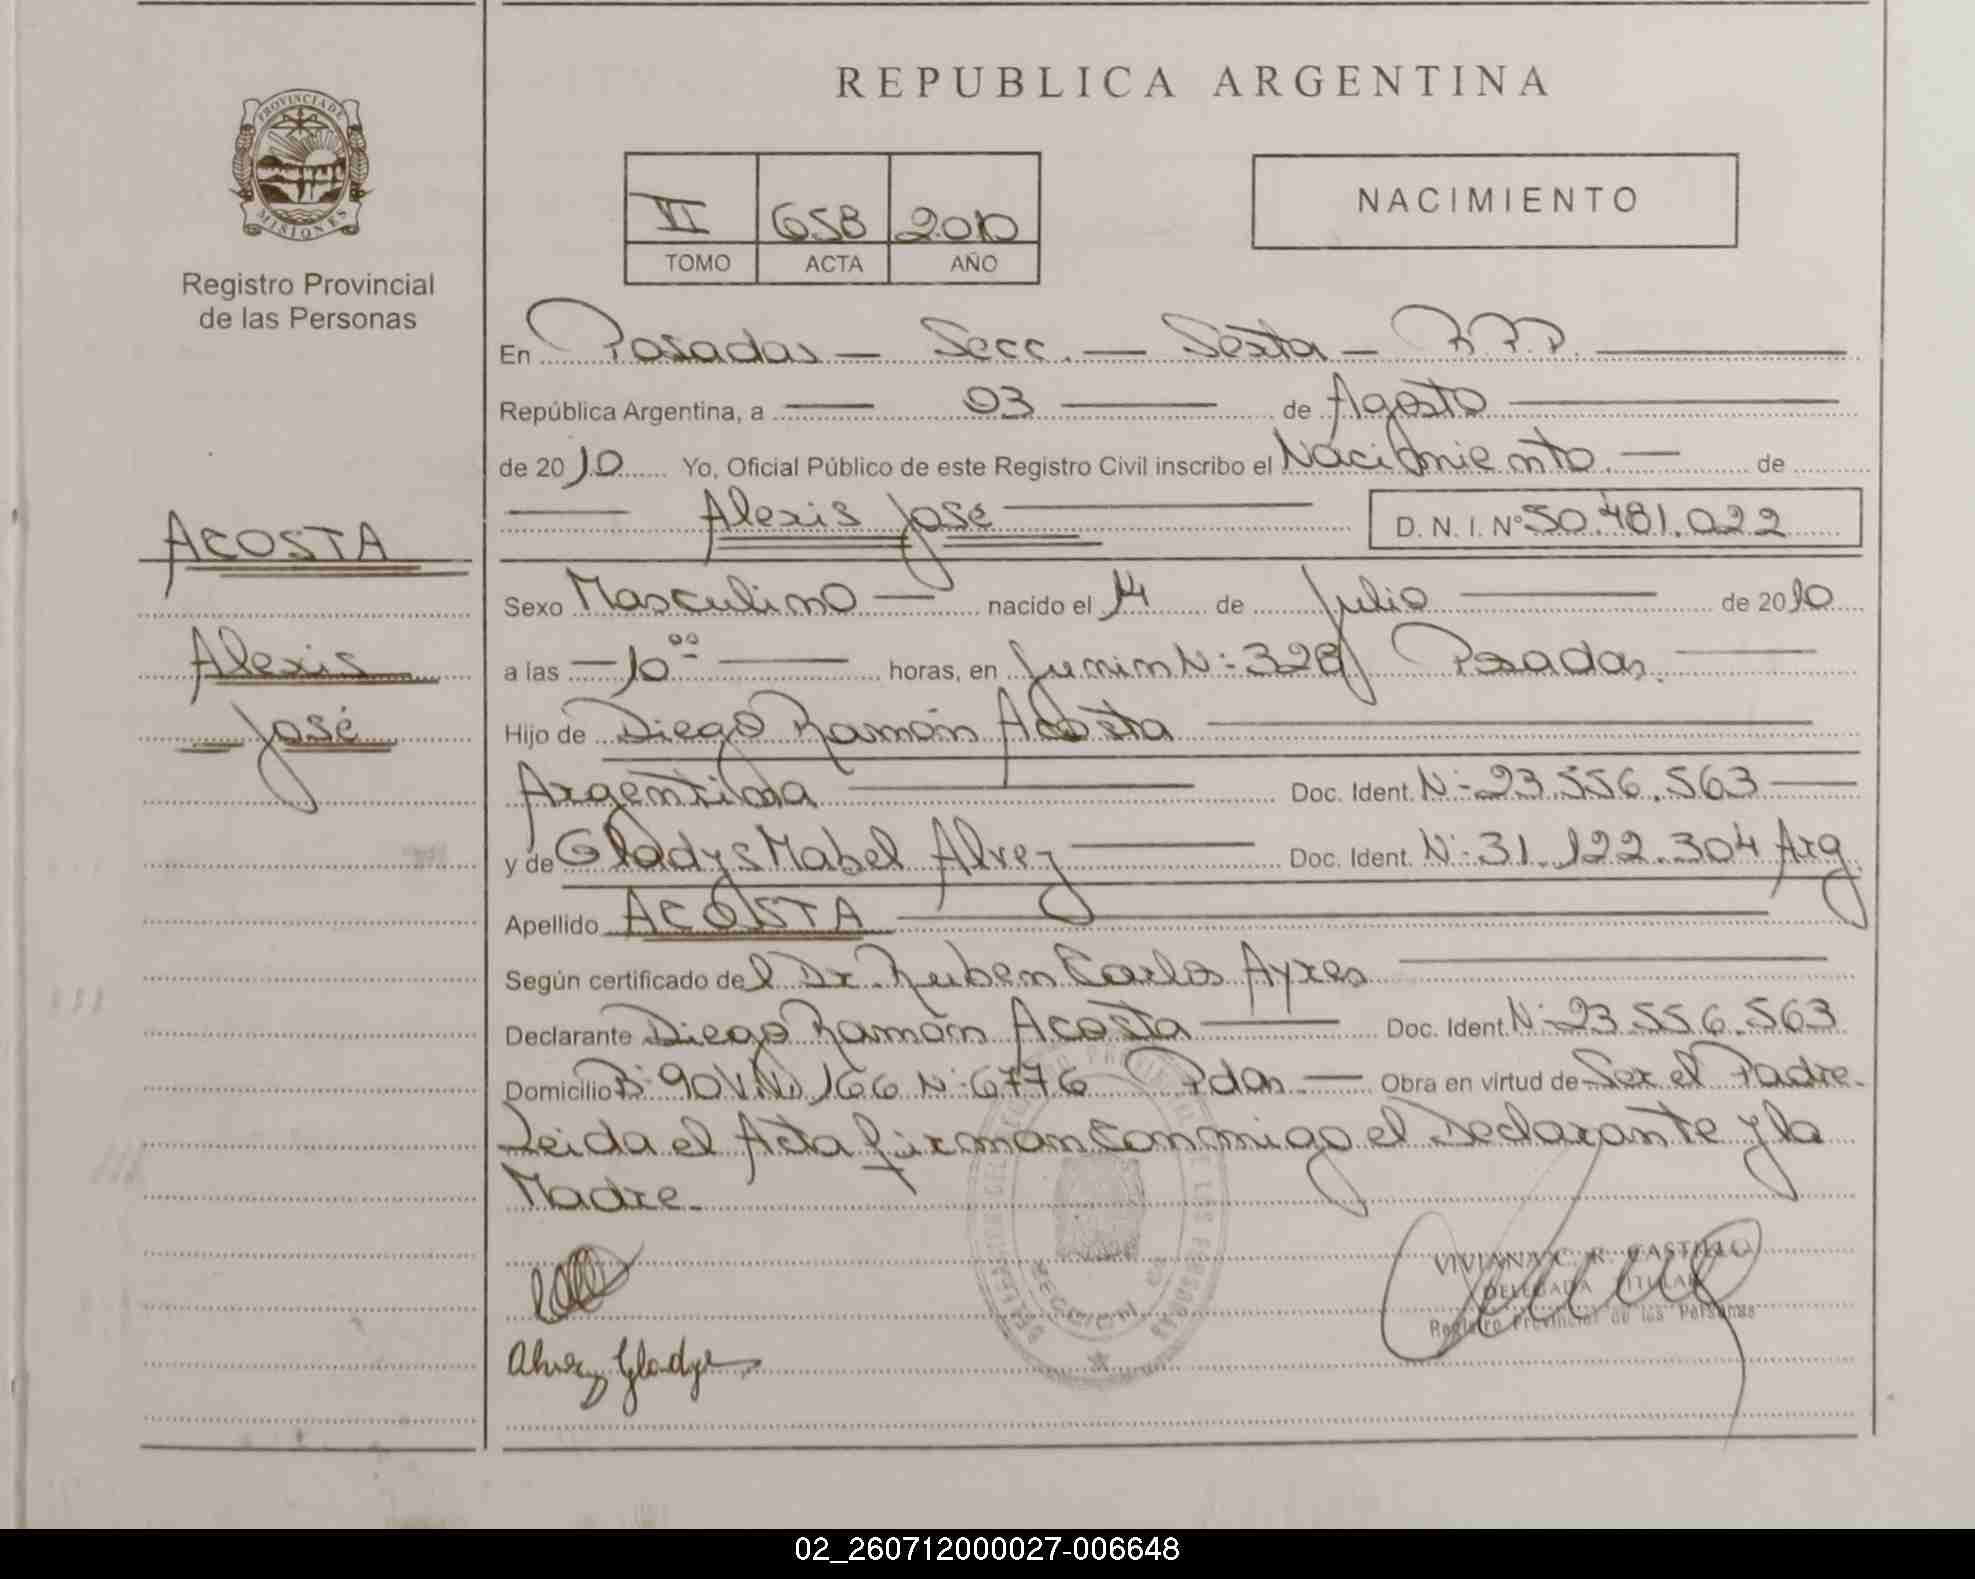 REPUBLICA ARGENTINA
PROVINCIA DE
MISIONES
Registro Provincial
de las Personas
VI 658 2010
TOMO ACTA AÑO
NACIMIENTO
En Posadas — Secc. — Sexta — R.P.P.
República Argentina, a — 03 — de Agosto
de 2010 Yo, Oficial Público de este Registro Civil inscribo el Nacimiento. — de
— Alexis José — D. N. I. Nº 50.481.022
ACOSTA
Alexis
José
Sexo Masculino — nacido el 14 de Julio — de 2010
a las — 10⁰⁰ — horas, en Junin N: 328 Posadas.
Hijo de Diego Ramón Acosta
Argentina — Doc. Ident. N: 23.556.563
y de Gladys Mabel Alvez — Doc. Ident. N: 31.122.304 Arg.
Apellido ACOSTA
Según certificado del Dr. Ruben Carlos Ayres
Declarante Diego Ramón Acosta — Doc. Ident. N: 23.556.563
Domicilio B: 90 Viv. 166 N: 6776 Pdas. — Obra en virtud de Ser el Padre.
Leida el Acta firman Conmigo el Declarante y la
Madre.
VIVIANA C. R. CASTILLO
DELEGADA TITULAR
Registro Provincial de las Personas
Alvez Gladys
02_260712000027-006648